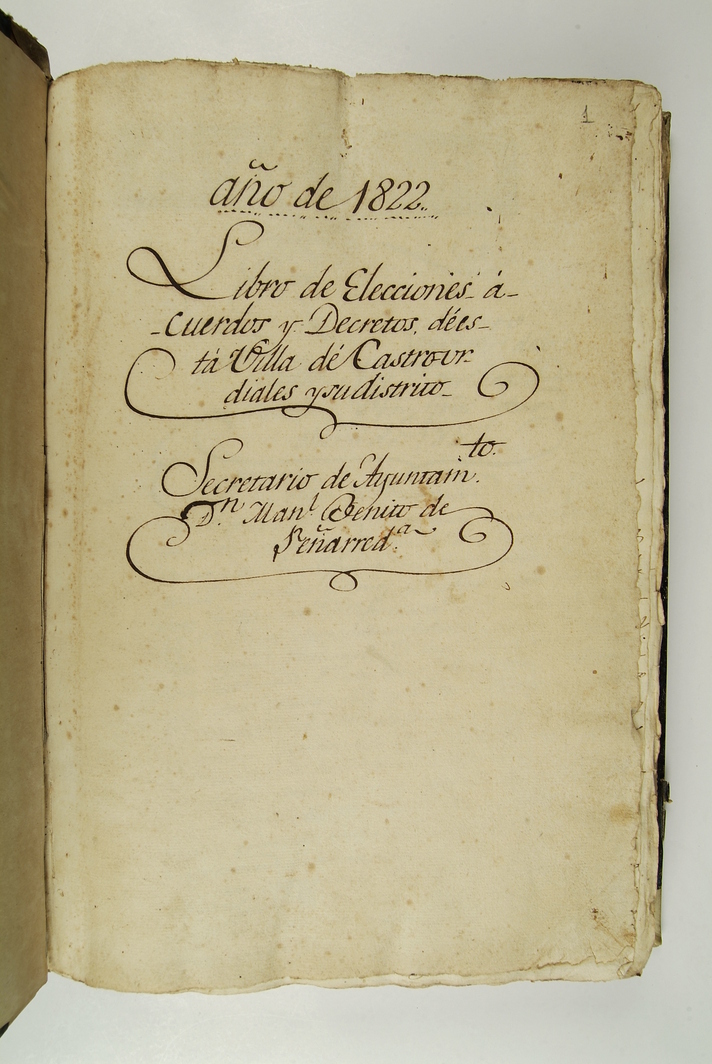 1
año de 1822.
Libro de Elecciones á-
-cuerdos y Decretos, dées-
tá Villa dé Castrour-
diales y su distrito_
Secretario de Ayuntam.to
D.n Man.l Benito de
Peñarred.a